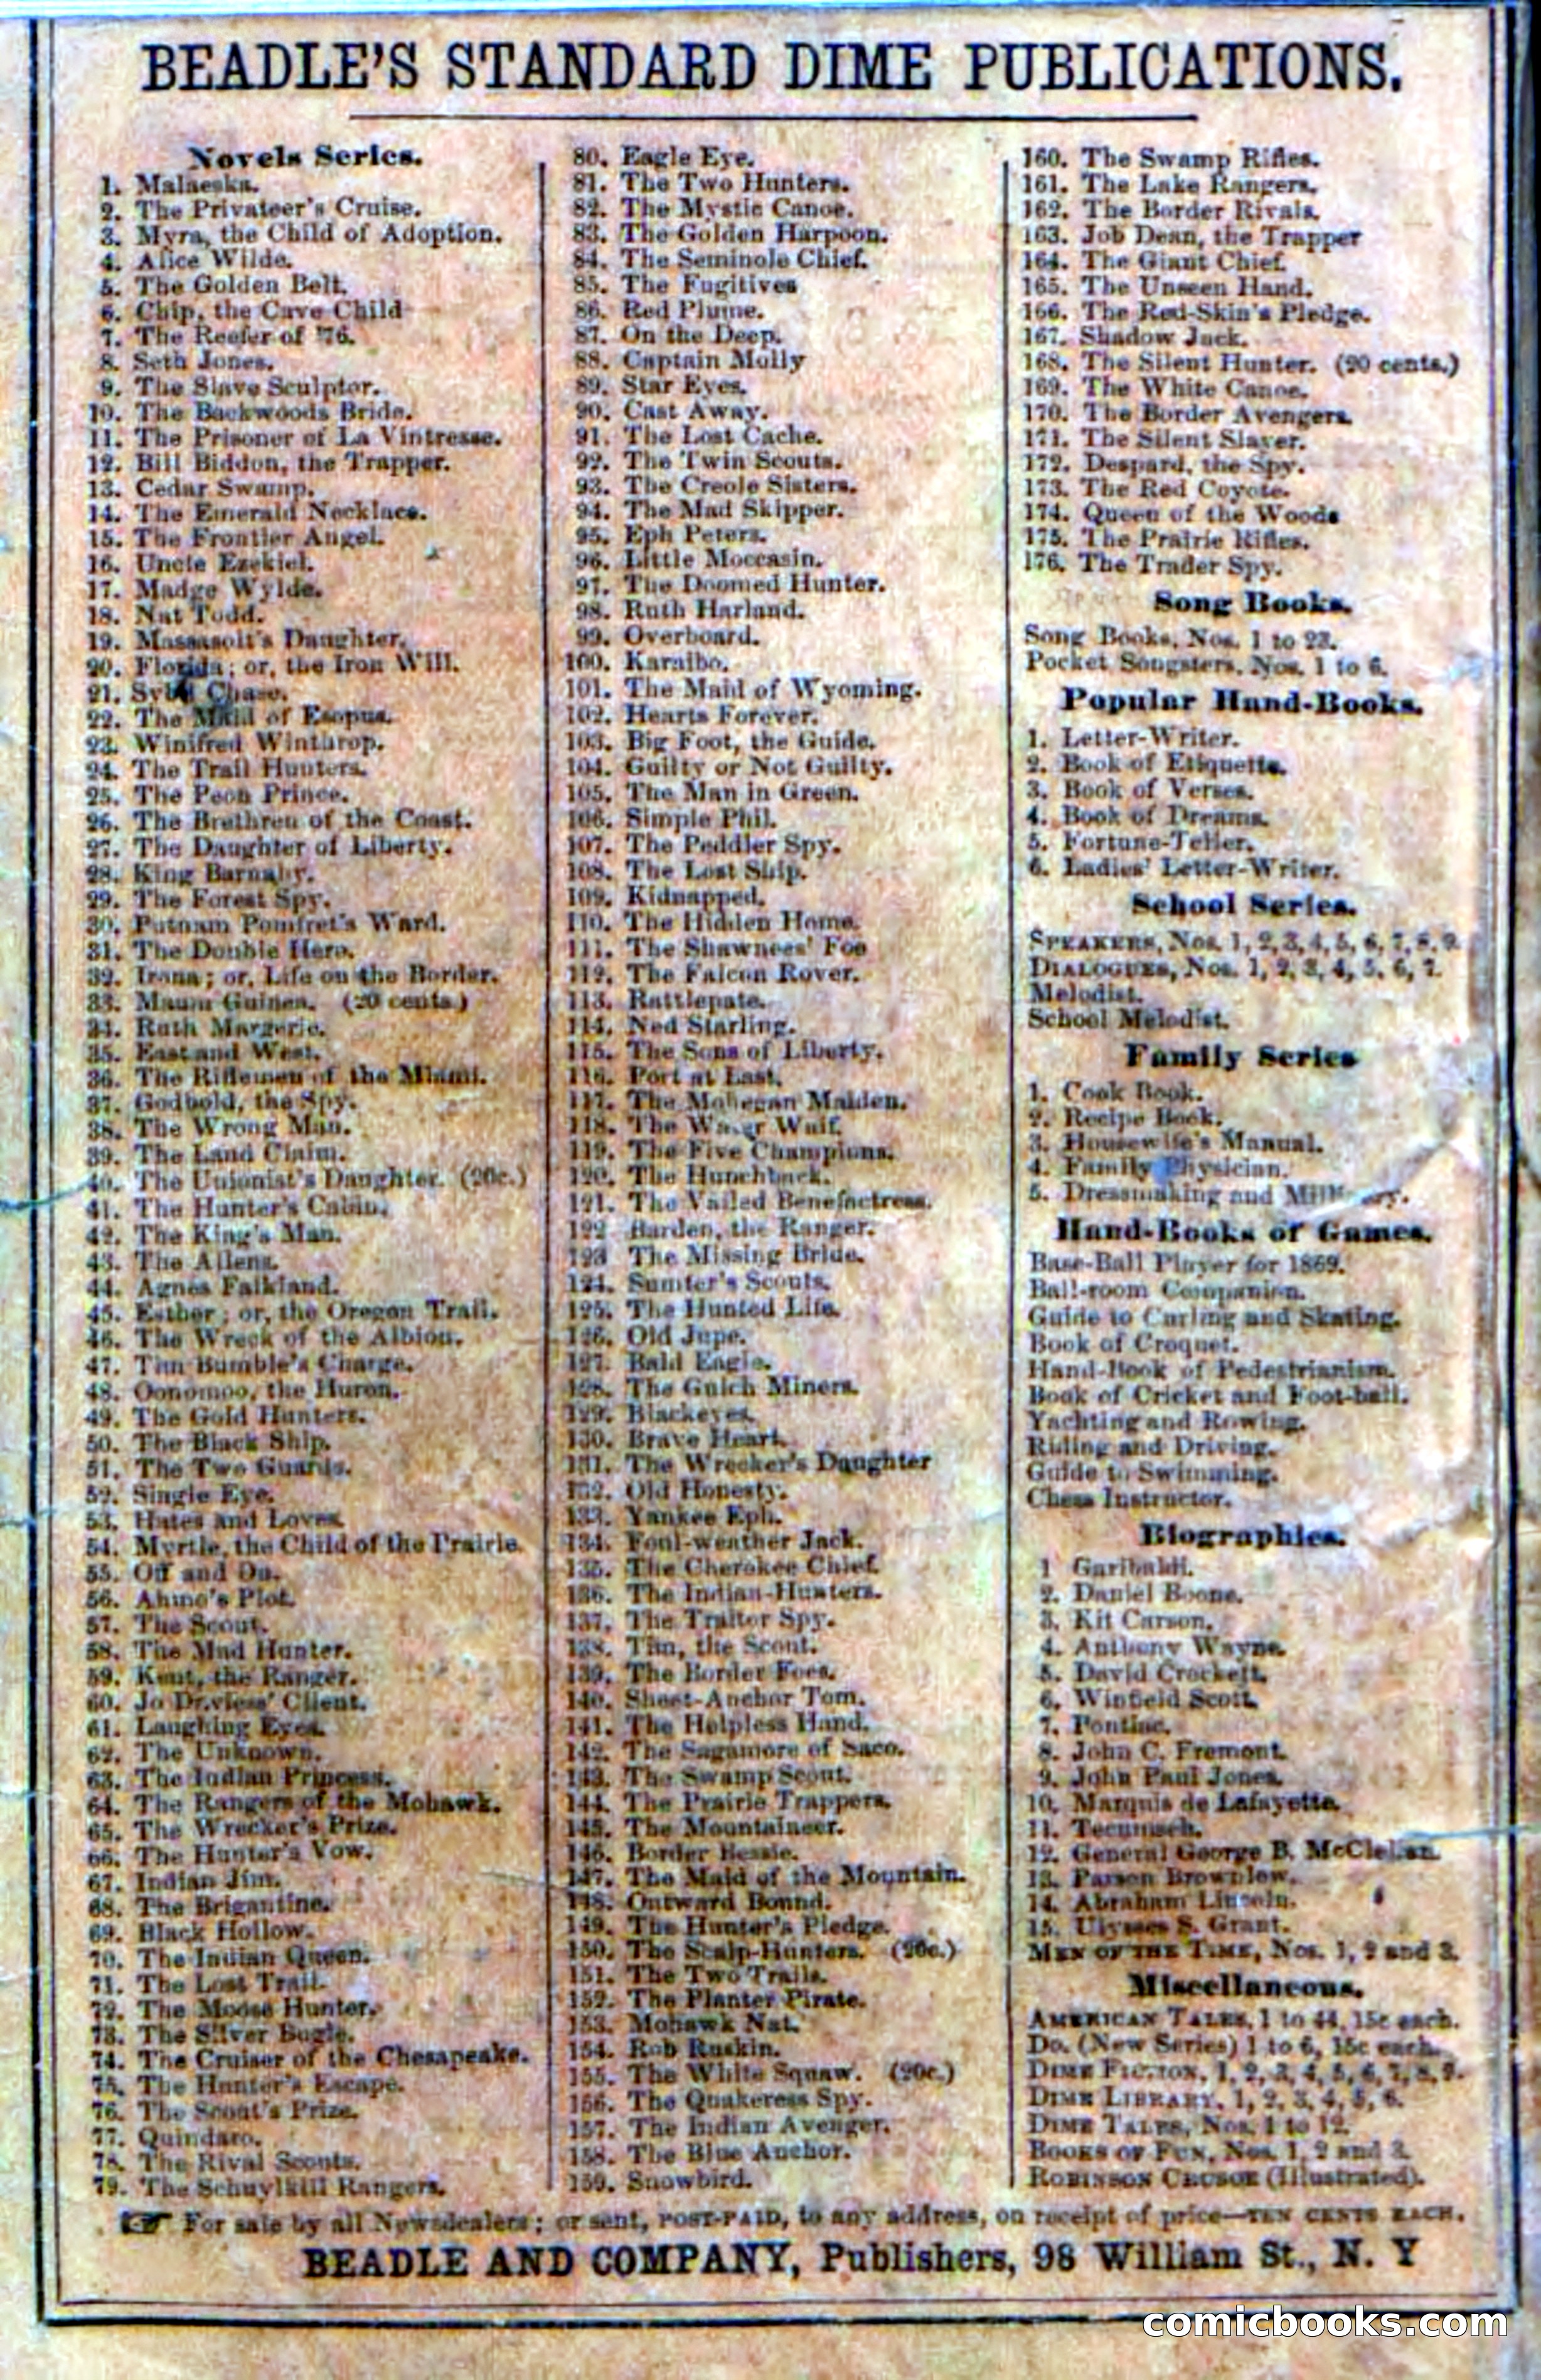 BEADLE'S STANDARD DIME PUBLICATIONS.
Novels Series.
1. Malaeska.
2. The Privateer's Cruise.
3. Myra, the Child of Adoption.
4. Alice Wilde.
5. The Golden Belt.
6. Chip, the Cave Child
7. The Reefer of '76.
8. Seth Jones.
9. The Slave Sculptor.
10. The Backwoods Bride.
11. The Prisoner of La Vintresse.
12. Bill Biddon, the Trapper.
13. Cedar Swamp.
14. The Emerald Necklace.
15. The Frontier Angel.
16. Uncle Ezekiel.
17. Madge Wylde.
18. Nat Todd.
19. Massasoit's Daughter.
20. Florida; or, the Iron Will.
21. Sybil Chase.
22. The Maid of Esopus.
23. Winifred Winthrop.
24. The Trail Hunters.
25. The Peon Prince.
26. The Brethren of the Coast.
27. The Daughter of Liberty.
28. King Barnaby.
29. The Forest Spy.
30. Putnam Pomfret's Ward.
31. The Double Hero.
32. Irona; or, Life on the Border.
33. Maum Guinea. (20 cents.)
34. Ruth Margerie.
35. East and West.
36. The Riflemen of the Miami.
37. Godbold, the Spy.
38. The Wrong Man.
39. The Land Claim.
40. The Unionist's Daughter. (20c.)
41. The Hunter's Cabin.
42. The King's Man.
43. The Allens.
44. Agnes Falkland.
45. Esther; or, the Oregon Trail.
46. The Wreck of the Albion.
47. Tim Bumble's Charge.
48. Oonomoo, the Huron.
49. The Gold Hunters.
50. The Black Ship.
51. The Two Guards.
52. Single Eye.
53. Hates and Loves.
54. Myrtle, the Child of the Prairie.
55. Off and On.
56. Ahmo's Plot.
57. The Scout.
58. The Mad Hunter.
59. Kent, the Ranger.
60. Jo Daviess' Client.
61. Laughing Eyes.
62. The Unknown.
63. The Indian Princess.
64. The Rangers of the Mohawk.
65. The Wrecker's Prize.
66. The Hunter's Vow.
67. Indian Jim.
68. The Brigantine.
69. Black Hollow.
70. The Indian Queen.
71. The Lost Trail.
72. The Moose Hunter.
73. The Silver Bugle.
74. The Cruiser of the Chesapeake.
75. The Hunter's Escape.
76. The Scout's Prize.
77. Quindaro.
78. The Rival Scouts.
79. The Schuylkill Rangers.
80. Eagle Eye.
81. The Two Hunters.
82. The Mystic Canoe.
83. The Golden Harpoon.
84. The Seminole Chief.
85. The Fugitives
86. Red Plume.
87. On the Deep.
88. Captain Molly
89. Star Eyes.
90. Cast Away.
91. The Lost Cache.
92. The Twin Scouts.
93. The Creole Sisters.
94. The Mad Skipper.
95. Eph Peters.
96. Little Moccasin.
97. The Doomed Hunter.
98. Ruth Harland.
99. Overboard.
100. Karaibo.
101. The Maid of Wyoming.
102. Hearts Forever.
103. Big Foot, the Guide.
104. Guilty or Not Guilty.
105. The Man in Green.
106. Simple Phil.
107. The Peddler Spy.
108. The Lost Ship.
109. Kidnapped.
110. The Hidden Home.
111. The Shawnees' Foe
112. The Falcon Rover.
113. Rattlepate.
114. Ned Starling.
115. The Sons of Liberty.
116. Port at Last.
117. The Mohegan Maiden.
118. The Water Waif.
119. The Five Champions.
120. The Hunchback.
121. The Vailed Benefactress.
122 Harden, the Ranger.
123 The Missing Bride.
124. Sumter's Scouts.
125. The Hunted Life.
126. Old Jupe.
127. Bald Eagle.
128. The Gulch Miners.
129. Blackeyes.
130. Brave Heart.
131. The Wrecker's Daughter
132. Old Honesty.
133. Yankee Eph.
134. Foul-weather Jack.
135. The Cherokee Chief.
136. The Indian-Hunters.
137. The Traitor Spy.
138. Tim, the Scout.
139. The Border Foes.
140. Sheet-Anchor Tom.
141. The Helpless Hand.
142. The Sagamore of Saco.
143. The Swamp Scout.
144. The Prairie Trappers.
145. The Mountaineer.
146. Border Bessie.
147. The Maid of the Mountain.
148. Outward Bound.
149. The Hunter's Pledge.
150. The Scalp-Hunters. (20c.)
151. The Two Trails.
152. The Planter Pirate.
153. Mohawk Nat.
154. Rob Ruskin.
155. The White Squaw. (20c.)
156. The Quakeress Spy.
157. The Indian Avenger.
158. The Blue Anchor.
159. Snowbird.
160. The Swamp Rifles.
161. The Lake Rangers.
162. The Border Rivals.
163. Job Dean, the Trapper
164. The Giant Chief.
165. The Unseen Hand.
166. The Red-Skin's Pledge.
167. Shadow Jack.
168. The Silent Hunter. (20 cents.)
169. The White Canoe.
170. The Border Avengers.
171. The Silent Slayer.
172. Despard, the Spy.
173. The Red Coyote.
174. Queen of the Woods
175. The Prairie Rifles.
176. The Trader Spy.
Song Books.
Song Books, Nos. 1 to 23.
Pocket Songsters, Nos. 1 to 6.
Popular Hand-Books.
1. Letter-Writer.
2. Book of Etiquette.
3. Book of Verses.
4. Book of Dreams.
5. Fortune-Teller.
6. Ladies' Letter-Writer.
School Series.
SPEAKERS, Nos. 1, 2, 3, 4, 5, 6, 7, 8, 9.
DIALOGUES, Nos. 1, 2, 3, 4, 5, 6, 7.
Melodist.
School Melodist.
Family Series
1. Cook Book.
2. Recipe Book.
3. Housewife's Manual.
4. Family Physician.
5. Dressmaking and Millinery.
Hand-Books of Games.
Base-Ball Player for 1869.
Ball-room Companion.
Guide to Curling and Skating.
Book of Croquet.
Hand-Book of Pedestrianism.
Book of Cricket and Foot-ball.
Yachting and Rowing.
Riding and Driving.
Guide to Swimming.
Chess Instructor.
Biographies.
1 Garibaldi.
2. Daniel Boone.
3. Kit Carson.
4. Anthony Wayne.
5. David Crockett.
6. Winfield Scott.
7. Pontiac.
8. John C. Fremont.
9. John Paul Jones.
10. Marquis de Lafayette.
11. Tecumseh.
12. General George B. McClellan.
13. Parson Brownlow.
14. Abraham Lincoln.
15. Ulysses S. Grant.
MEN OF THE TIME, Nos. 1, 2 and 3.
Miscellaneous.
AMERICAN TALES, 1 to 44, 15c each.
Do. (New Series) 1 to 6, 15c each.
DIME FICTION, 1, 2, 3, 4, 5, 6, 7, 8, 9.
DIME LIBRARY, 1, 2, 3, 4, 5, 6.
DIME TALES, Nos. 1 to 12.
BOOKS OF FUN, Nos. 1, 2 and 3.
ROBINSON CRUSOE (Illustrated).
☞ For sale by all Newsdealers; or sent, POST-PAID, to any address, on receipt of price—TEN CENTS EACH.
BEADLE AND COMPANY, Publishers, 98 William St., N. Y
comicbooks.com